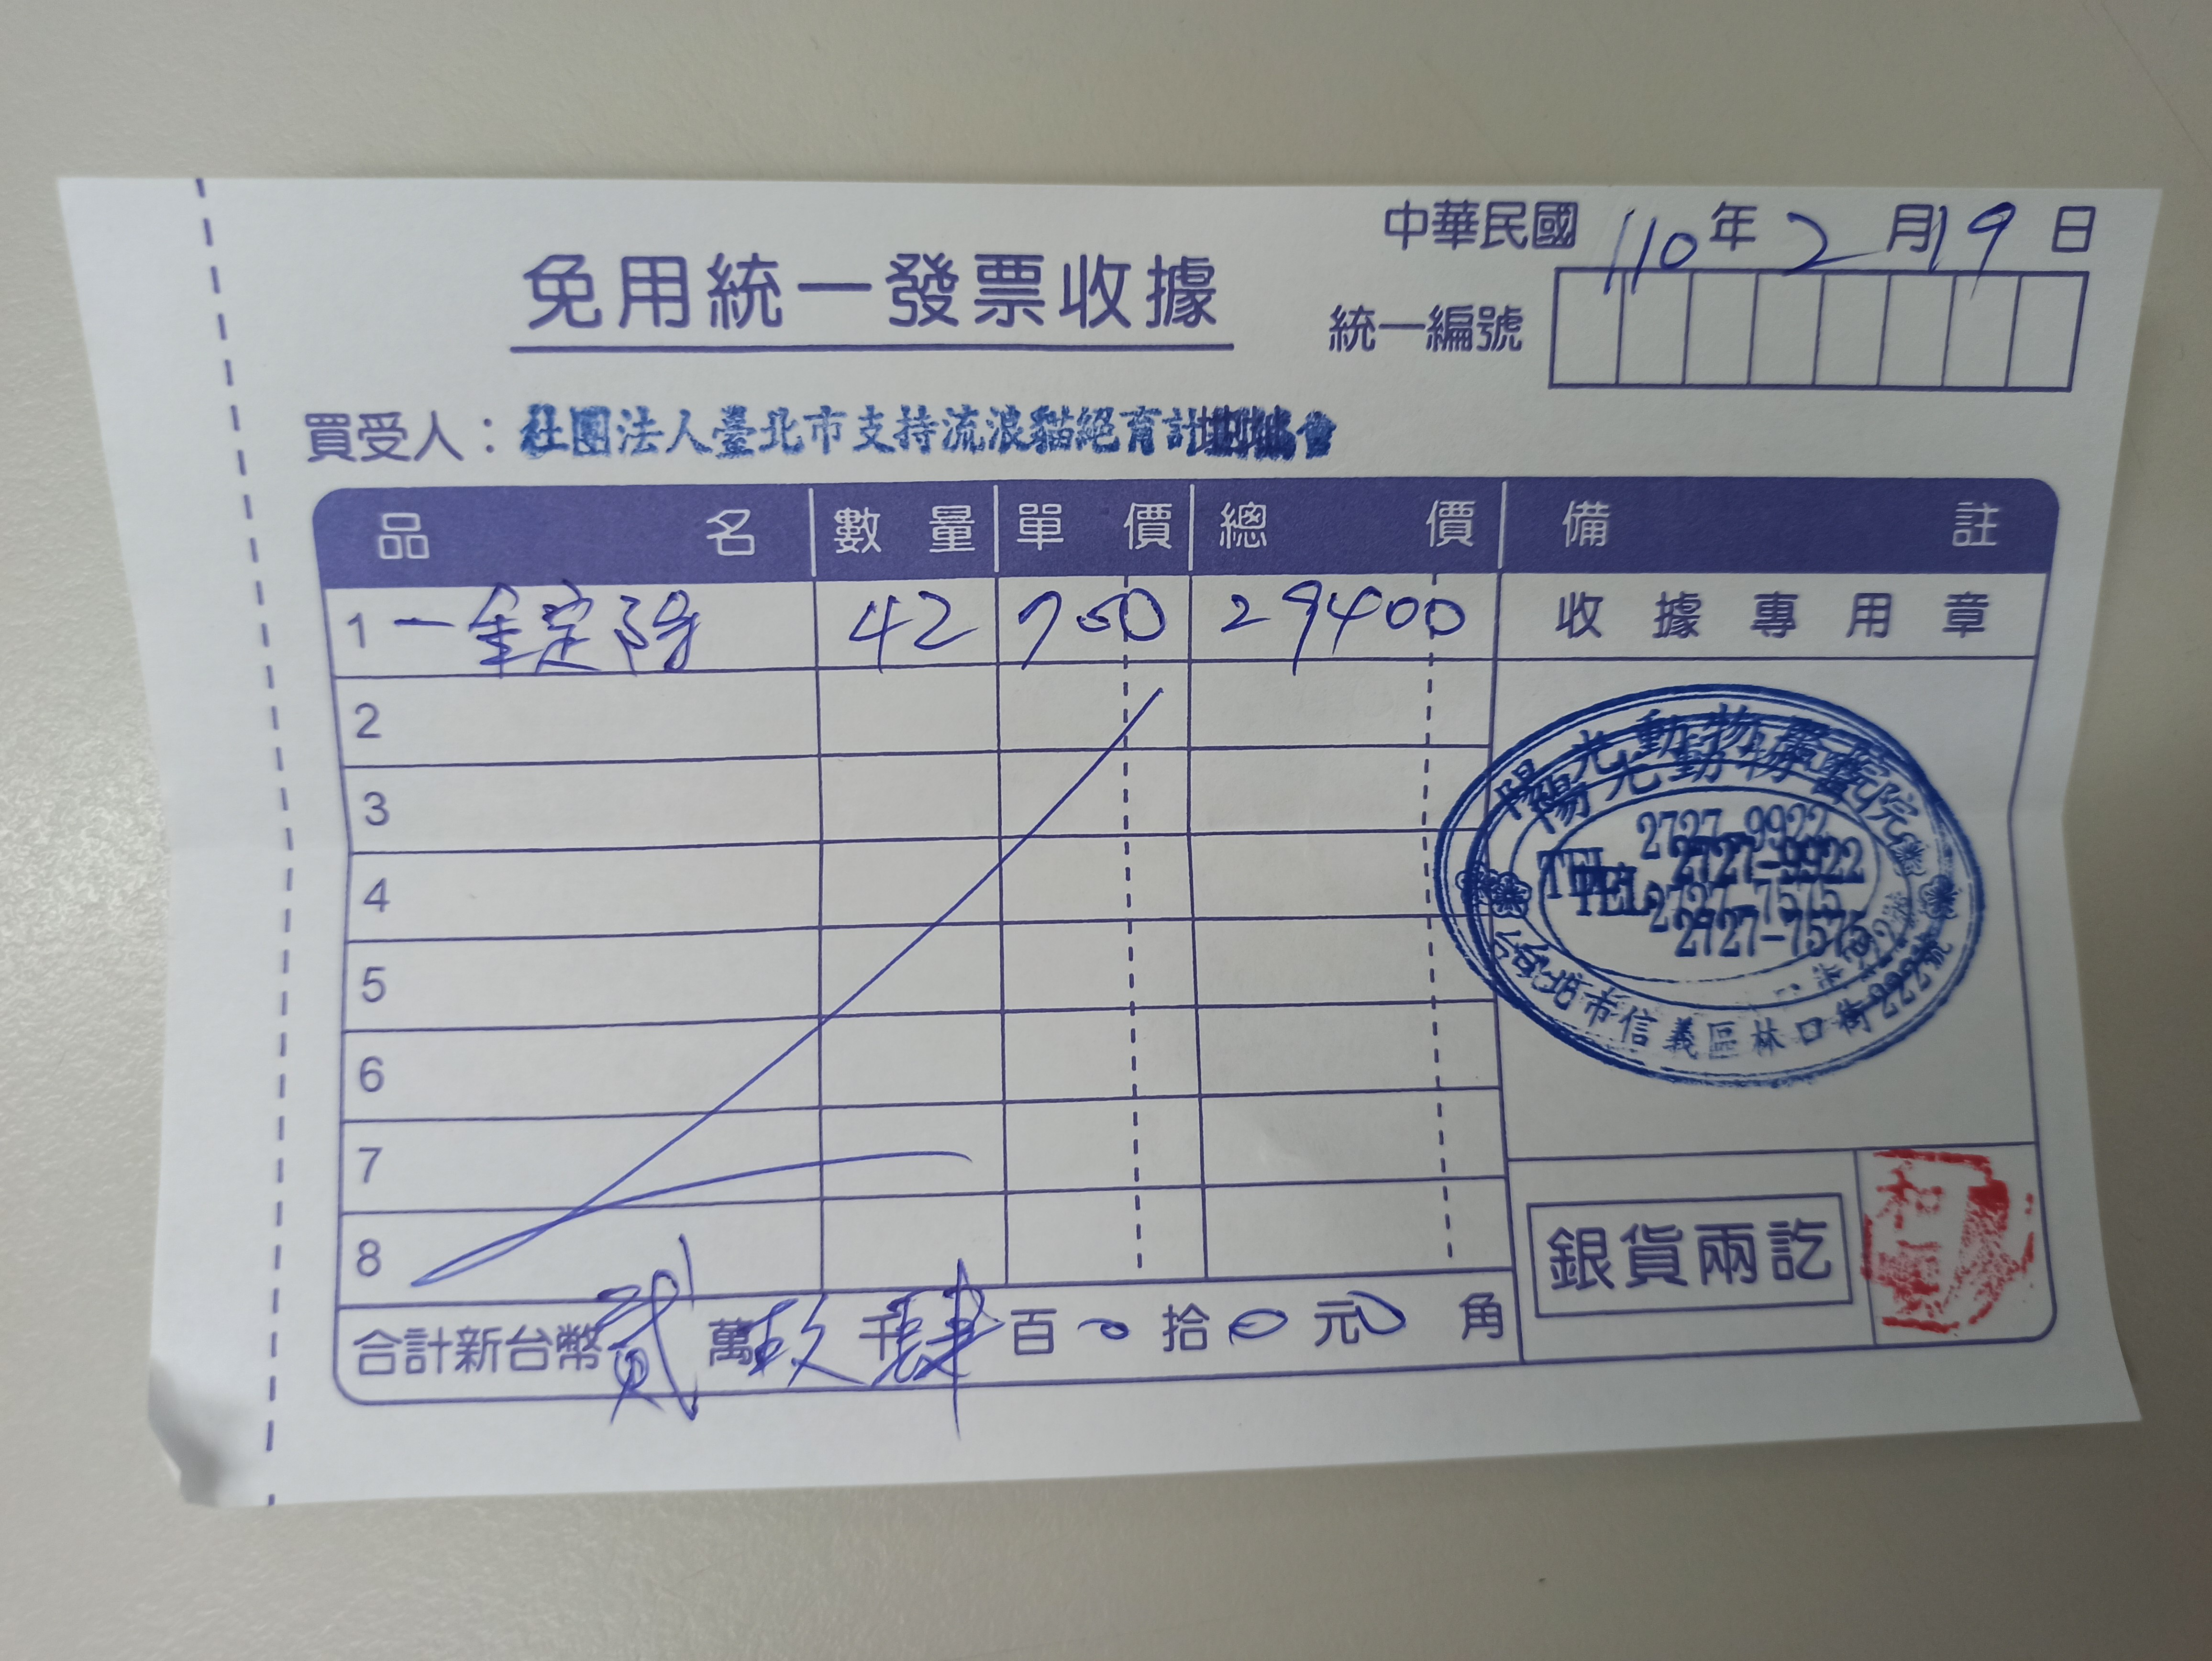 中華民國 110 年 2 月 19 日
免用統一發票收據
統一編號
買受人：社團法人臺北市支持流浪貓絕育計劃協會
品名 數量 單價 總價 備註
1 一錠除 42 700 29400 收據專用章
2
3
4
5
6
7
8
陽光動物醫院
TEL 2727-9922
2727-7575
台北市信義區林口街222號
銀貨兩訖
合計新台幣 貳 萬 玖 千 肆 百 0 拾 0 元 0 角